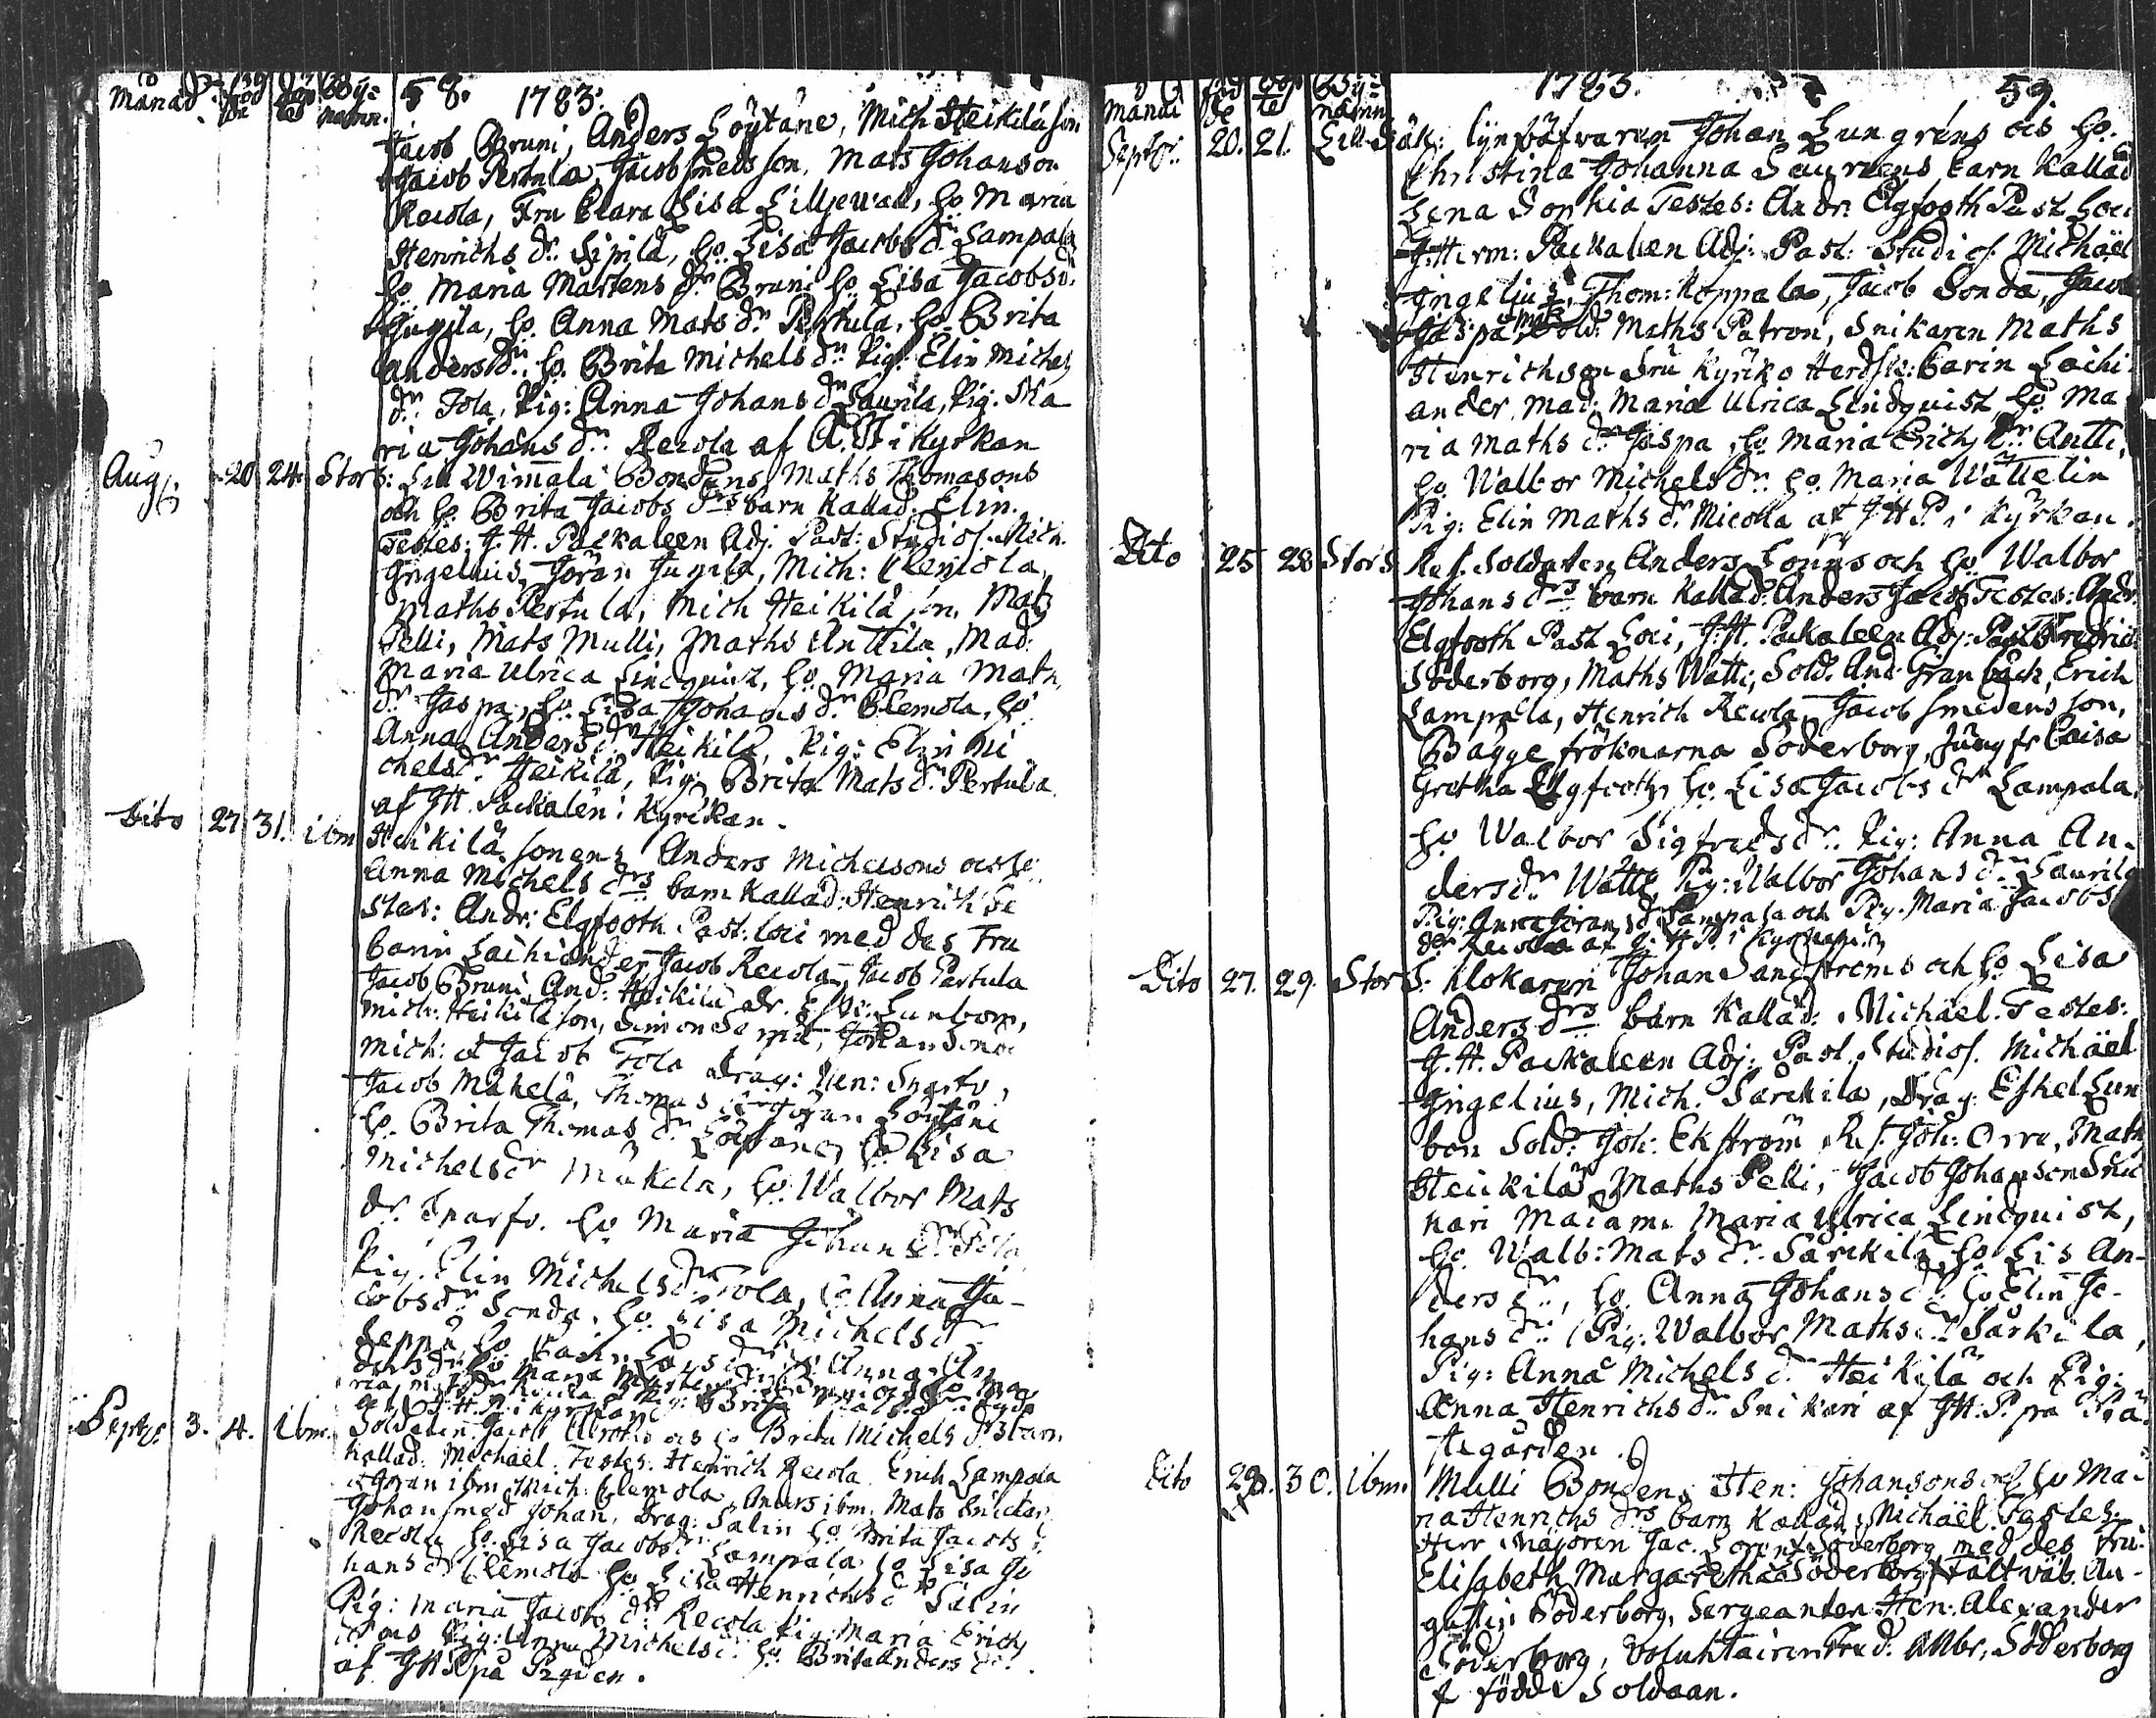 Månad födde döpte By= namn. 58. 1783.
Jacob Bruni, Anders Löytäne, Mich Heikilä son
Jacob Pertula, Jacob Smeds son, Mats Johanson
Recola, Fru Clara Lisa Lilljewal, H. Maria
Henrichs dr. Sipilä, H. Lisa Jacobs dr Lampala
H. Maria Mårtens dr Bruni H. Lisa Jacobs dr
Jugila, H. Anna Mats dr Pertula, H. Brita
Anders dr. H. Brita Michels dr Pig: Elin Michels
dr. Tola, Pig: Anna Johans dr Saurila, Pig. Ma
ria Johans dr. Recola af A. i Kyrkan
Aug. 20 24 Stor S: Wimala Bondens Maths Thomasons
och H. Brita Jacobs drs barn Kallad: Elin.
Testes: J. H. Packaleen Adj. Past: Studios. Mich.
Grigelius, Jöran Jugila, Mich: Clemola,
Maths Pertula, Mich Heikilä son, Mats
Pelli, Mats Mulli, Maths Anttila, Mad:
Maria Ulrica Lindquist, H. Maria Mats
dr. Jaspa, H. Lisa Johans dr Clemola, H.
Anna Anders dr Heikilä, Pig: Elin Mi
chels dr Heikilä, Pig: Brita Mats dr. Pertula
af JH. Packalén i Kyrckan.
Dito 27 31. ibm Heikilä sonens Anders Michelsons och H.
Anna Michels drs barn Kallad: Henrich Te
stes: Andr: Elgfooth Past: loci med des Fru
Carin Laihiander, Jacob Recola, Jacob Pertula
Jacob Bruni And: Heikilä dr. Esk: Lunbom,
Mich: Heikilä son, Simon Seppä, Johan Sonda
Mich: et Jacob Tola Drag: Hen: Snarfv,
Jacob Mäkelä, Thomas et Jöran Löytäne
H. Brita Thomas dr Löytäne, H. Lisa
Michels dr Mäkelä, H. Walbor Mats
dr. Snarfv. H. Maria Johans dr Tola
Pig. Elin Michels dr Tola, H. Anna Ja-
cobs dr Sonda, H. Lisa Michels dr
Seppä, H. Carin Lars dr H. Anna An
ders dr H. Maria Mårtens dr
Septr. 3. 4. ibm. Soldaten Jacob och H Brita Michels drs barn
Kallad. Michäel. Testes. Henrich Recola Erich Lampala
et Jöran ibm, Mich: Clemola Anders ibm. Mats Snickar
Johan Smed Johan, Drag: Salin H. Brita Jacobs dr
Recola H. Lisa Jacobs dr Lampala H. Lisa Jo
hans dr Clemola H. Lisa Henrichs dr Salin
Pig: Maria Jacobs dr. Recola Pig: Maria Erichs
dr Pig: Anna Michels dr. H. Brita Anders dr.
af JHP på Prgden.
Månad de te By= namn 1783. 59.
Septbr: 20. 21. Lill Säk: Johan Lungréns och H.
Christina Johanna Laurens barn Kallad
Lena Sophia Testes: Andr: Elgfooth Past Loci
J. Herm: Packaleen Adj: Past: Studios Michäel
Grigelius, Thom: Koppala, Jacob Sonda, Jacob
Jaspa, Sold: Maths Patron, Snikaren Maths
Henrichson Fru Kyrko Herdsk: Carin Laihi
ander, Mad: Maria Ulrica Lindquist H. Ma
ria Maths dr Jaspa, H. Maria Erichs dr Antti,
H. Walbor Michels dr H. Maria Wättelin
Pig: Elin Maths dr Micola af JHP i Kyrkan.
Dito 25 28 Stor S Ref. Soldaten Anders Lönns och H. Walbor
Johans drs barn Kallad: Anders Jacob Testes: Andr:
Elgfooth Past Loci, J. H. Packaleen Adj: Past Fredric
Söderborg, Maths Watti, Sold. And: Granbäck, Erich
Lampala, Henrich Recola, Jacob Smedens son,
Bagge fröknarna Söderborg, Jungfr Caisa
Gretha Elgfooth, H. Lisa Jacobs dr Lampala,
H. Walbor Sigfreds dr. Pig: Anna An-
ders dr Watti Pig: Walbor Johans dr Saurila
Pig: Anna Jörans dr Lampala och Pig. Maria Jacobs
der Recola af J. H P. i Kyrckan.
Dito 27. 29. Stor S: Klokaren Johan Sandströms och H. Lisa
Anders drs barn Kallad: Michäel. Testes:
J. H. Packaleen Adj: Past. Studios. Michäel
Grigelius, Mich. Särckilä, Drag: Eskel Lun
bom Sold: Joh: Ekström Ref. Joh: Orre, Maths
Heickilä Maths Pelli, Jacob Johanson Sni
kari Madam. Maria Ulrica Lindquist,
H. Walb: Mats dr. Särckilä H. Lis An-
ders dr., H. Anna Johans dr. H. Elin Jo-
hans dr. Pig: Walbor Maths dr Särkilä,
Pig: Anna Michels dr Heikilä och Pig:
Anna Henrichs dr Snikari af JH. P. på Prä
stegården.
Dito 29. 30. ibm. Mulli Bondens Hen: Johansons och H. Ma-
ria Henrichs drs barn Kallad: Michäel. Testes.
Herr Majoren Jac. Lorentz Söderborg med des Fru
Elisabeth Margaretha Söderborg, Fält väb. Au-
gustin Söderborg, Sergeanten Hen: Alexander
Söderborg, Voluntairen Fred: Ambr: Söderborg
f födde Soldaan.